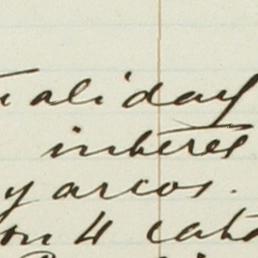 aliday
interes
y arcos.
on 4 cats